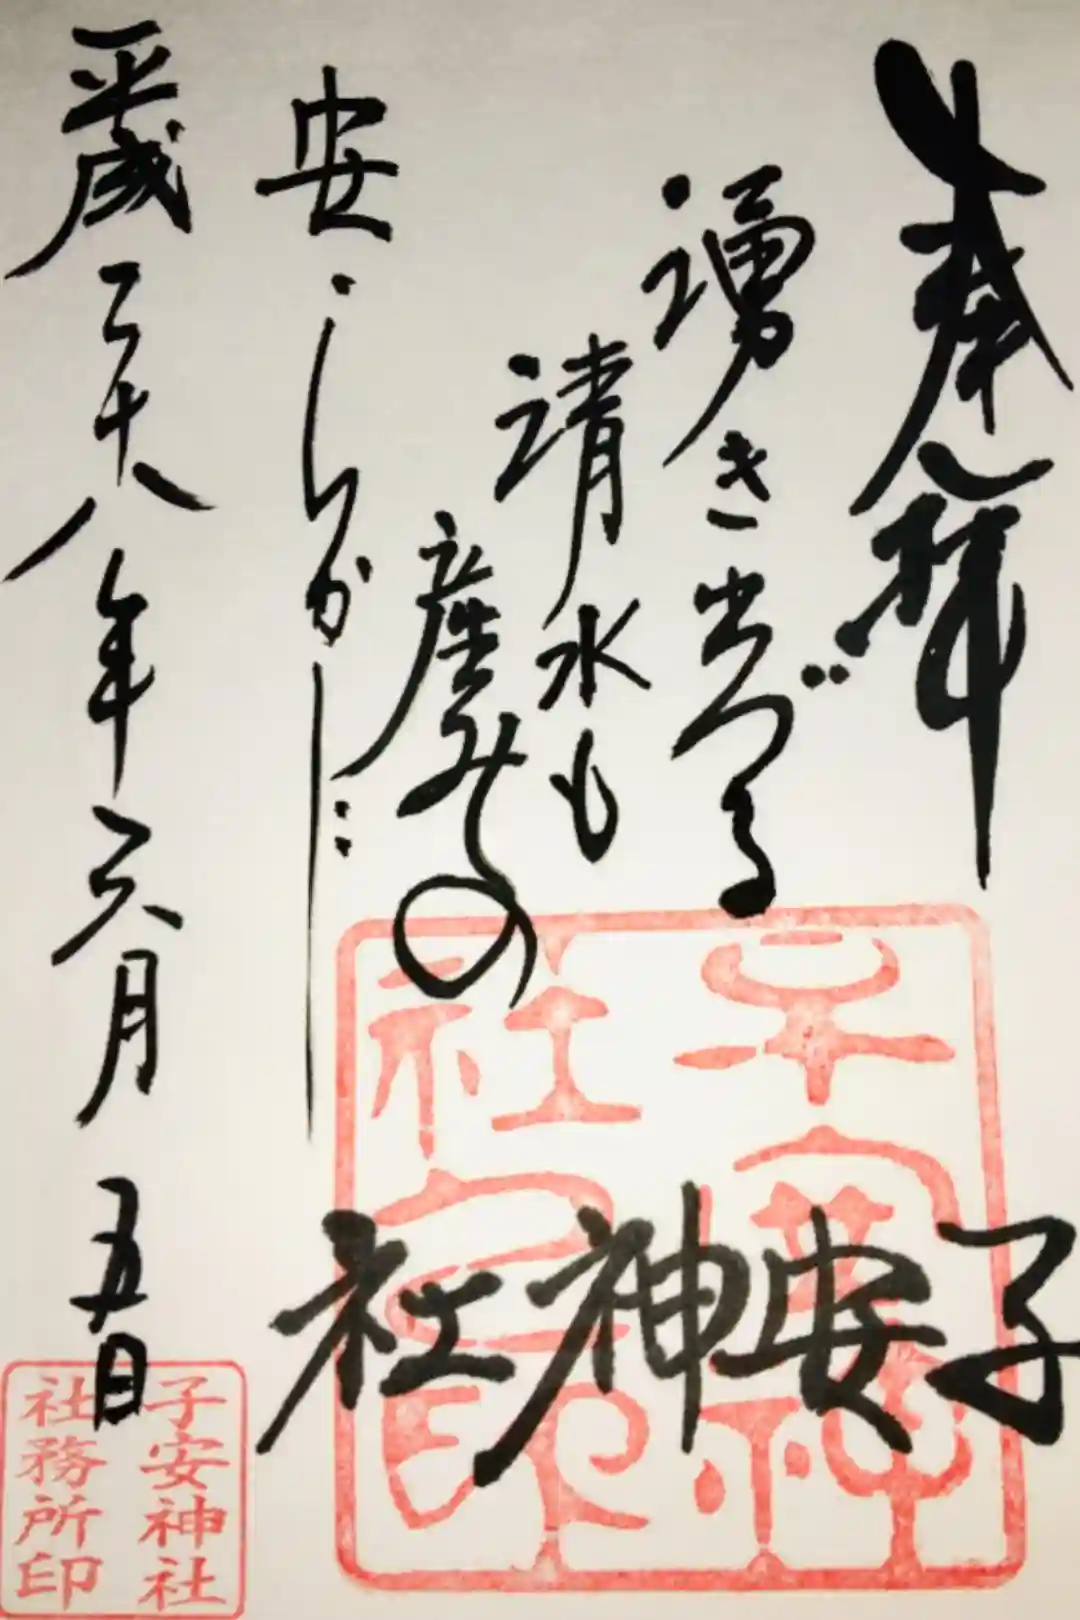 奉拝
湧き出づる
清水も
産みの
安らかに
平成二十八年六月五日
子安神社
子安神社社之印
子安神社
社務所印